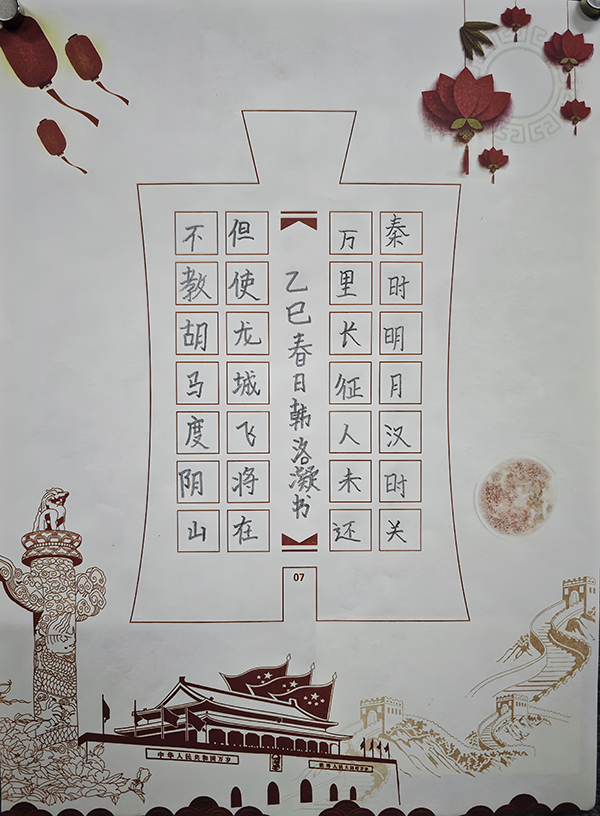 秦时明月汉时关
万里长征人未还
乙巳春日韩洛凝书
但使龙城飞将在
不教胡马度阴山
07
中华人民共和国万岁